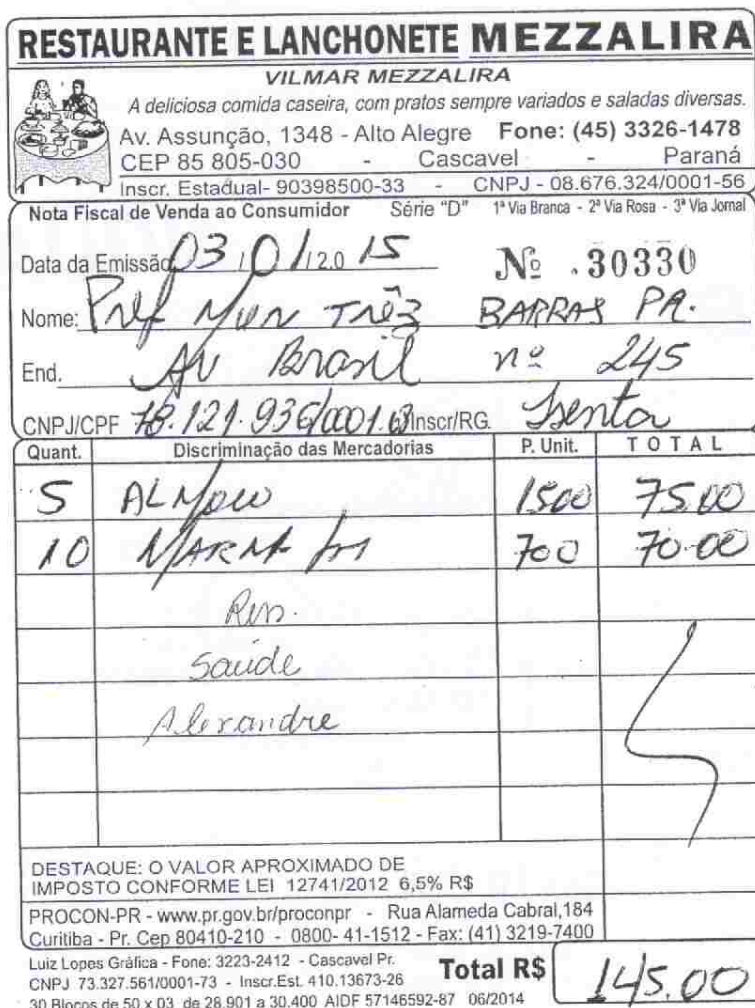 RESTAURANTE E LANCHONETE MEZZALIRA
VILMAR MEZZALIRA
A deliciosa comida caseira, com pratos sempre variados e saladas diversas.
Av. Assunção, 1348 - Alto Alegre Fone: (45) 3326-1478
CEP 85 805-030 - Cascavel - Paraná
Inscr. Estadual- 90398500-33 - CNPJ - 08.676.324/0001-56
Nota Fiscal de Venda ao Consumidor Série "D" 1ª Via Branca - 2ª Via Rosa - 3ª Via Jornal
Data da Emissão 03 / 01 / 20 15 Nº 30330
Nome: Pref Mun Três BARRAS PR.
End. AV Brasil nº 245
CNPJ/CPF 78.121.936/0001. Inscr/RG. Isenta
Quant. Discriminação das Mercadorias P. Unit. TOTAL
5 ALMOÇO 1500 75.00
10 700 70.00
Saúde
Alexandre
DESTAQUE: O VALOR APROXIMADO DE
IMPOSTO CONFORME LEI 12741/2012 6,5% R$
PROCON-PR - www.pr.gov.br/proconpr - Rua Alameda Cabral,184
Curitiba - Pr. Cep 80410-210 - 0800- 41-1512 - Fax: (41) 3219-7400
Luiz Lopes Gráfica - Fone: 3223-2412 - Cascavel Pr.
CNPJ 73.327.561/0001-73 - Inscr.Est. 410.13673-26
30 Blocos de 50 x 03 de 28.901 a 30.400 AIDF 57146592-87 06/2014
Total R$ 145.00